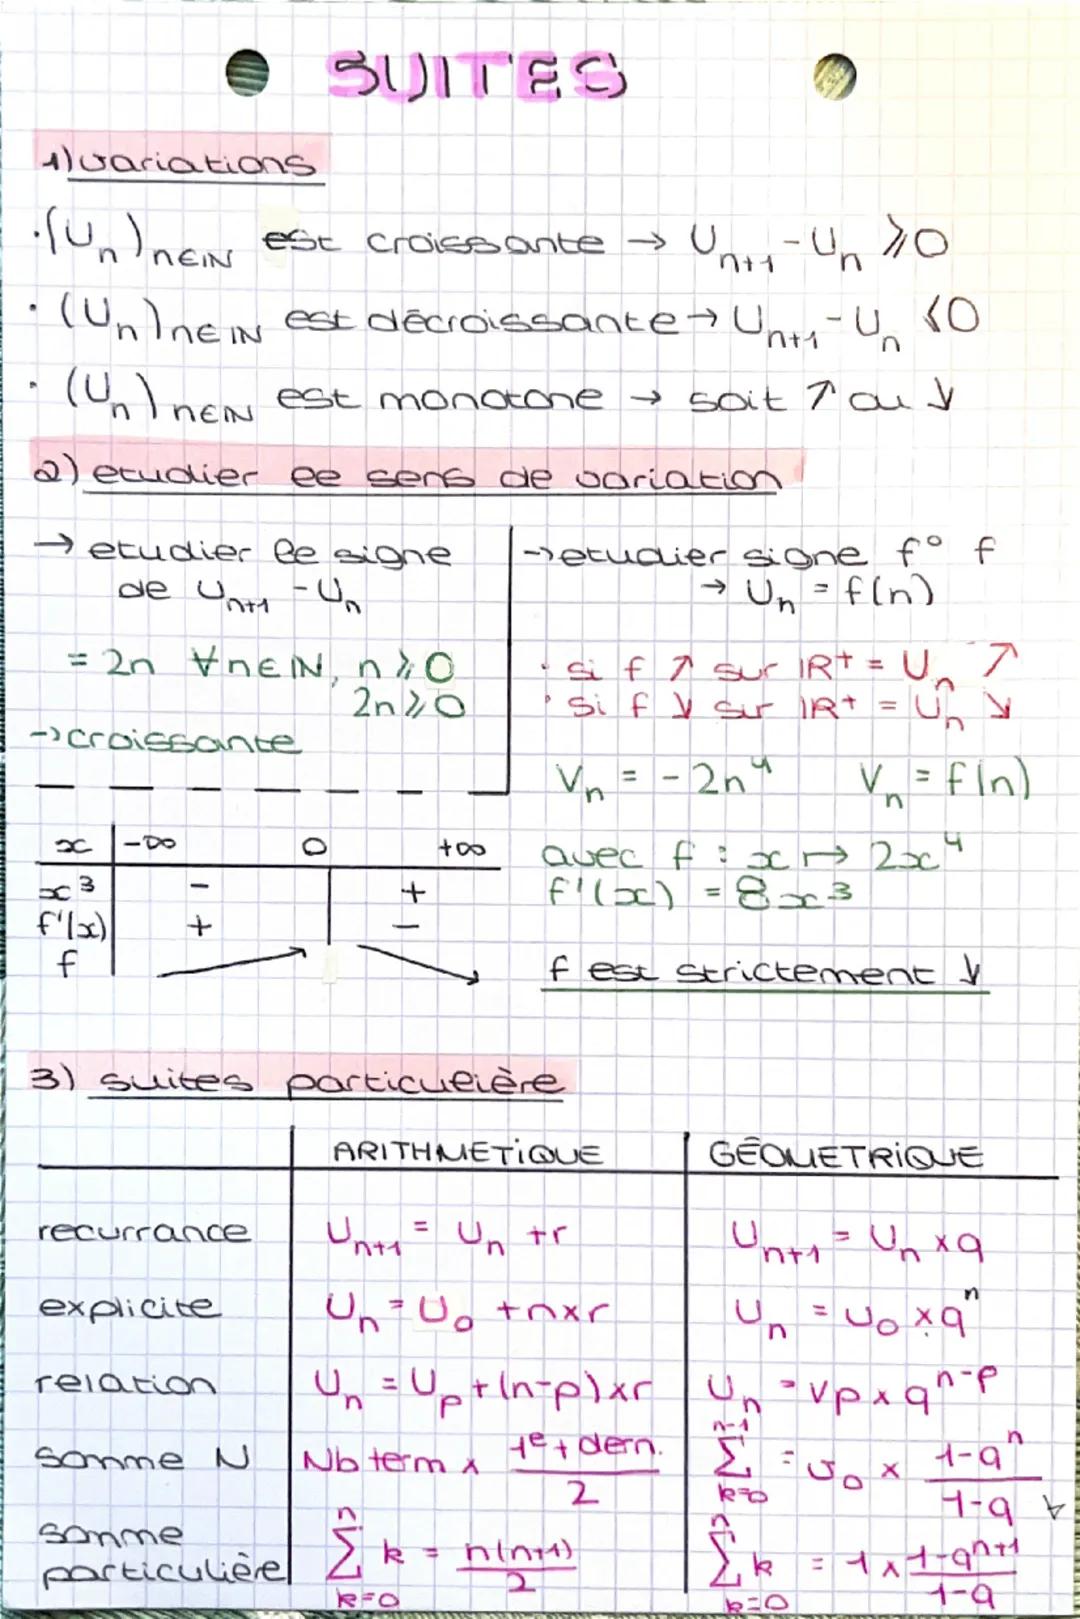 SUITES
1) variations
· (Un)n∈IN est croissante → Un+1 - Un ⩾ 0
· (Un)n∈IN est décroissante → Un+1 - Un ⩽ 0
· (Un)n∈IN est monotone → soit ↗ ou ↘
2) etudier le sens de variation
→ etudier le signe
de Un+1 - Un
= 2n ∀n∈IN, n ⩾ 0
2n ⩾ 0
→ croissante
→ etudier signe f° f
→ Un = f(n)
· si f ↗ sur IR+ = Un ↗
· si f ↘ sur IR+ = Un ↘
Vn = -2n⁴ Vn = f(n)
avec f : x ↦ 2x⁴
f'(x) = 8x³
f est strictement ↘
x -∞ 0 +∞
x³ - +
f'(x) + -
f
3) suites particulière
ARITHMETIQUE GÉOMETRIQUE
recurrance Un+1 = Un + r Un+1 = Un × q
explicite Un = U0 + n×r Un = U0 × qⁿ
relation Un = Up + (n-p)×r Un = Vp × qⁿ⁻ᵖ
somme N Nb term × (1e + dern.)/2 Σ(k=0, n-1) = U0 × (1-qⁿ)/(1-q)
somme
particulière Σ(k=0, n) k = n(n+1)/2 Σ(k=0, n) k = 1 × (1-qⁿ⁺¹)/(1-q)